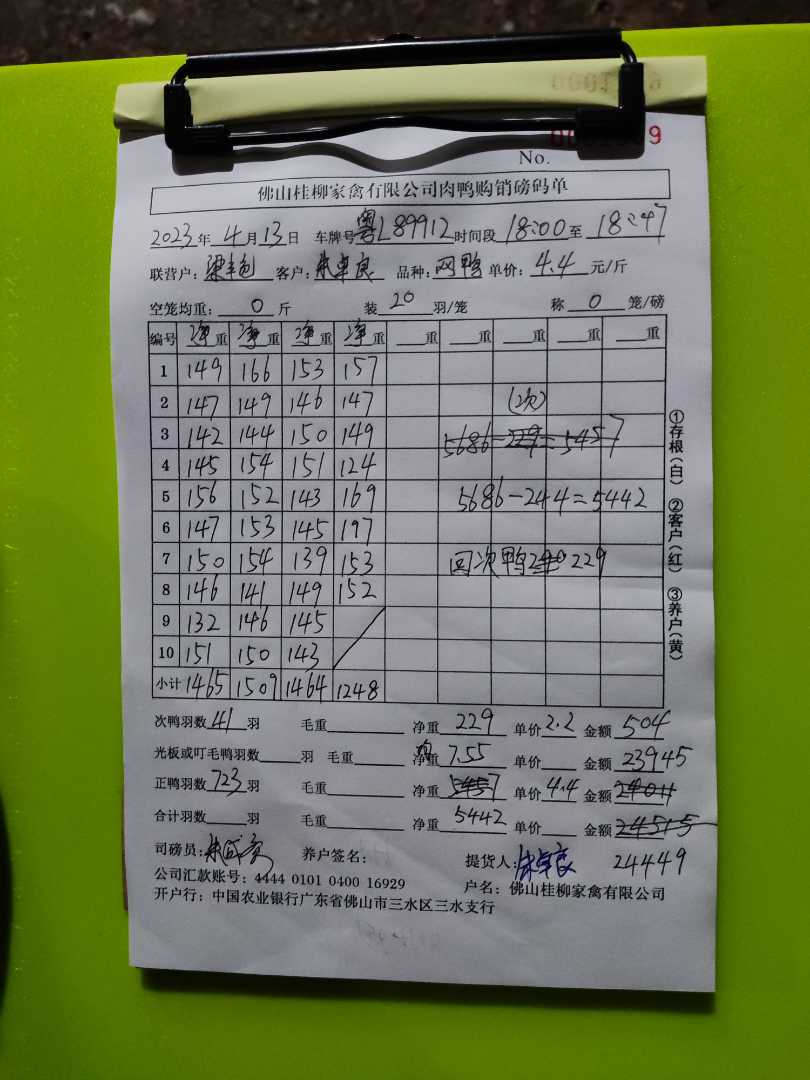 No.
佛山桂柳家禽有限公司肉鸭购销磅码单
2023年 4月 13日 车牌号 粤L89912 时间段 18:00 至 18:47
联营户: 客户: 朱卓良 品种: 网鸭 单价: 4.4 元/斤
空笼均重: 0 斤 装 20 羽/笼 称 0 笼/磅
编号 净重 净重 净重 净重 重 重 重 重 重
1 149 166 153 157
2 147 149 146 147 (次)
3 142 144 150 149 5686-229=5457
4 145 154 151 124
5 156 152 143 169 5686-244=5442
6 147 153 145 197
7 150 154 139 153 回次鸭 229
8 146 141 149 152
9 132 146 145
10 151 150 143
小计 1465 1509 1464 1248
①存根(白) ②客户(红) ③养户(黄)
次鸭羽数 41 羽 毛重 净重 229 单价 2.2 金额 504
光板或叮毛鸭羽数 羽 毛重 净重 7.55 单价 金额 23945
正鸭羽数 723 羽 毛重 净重 5457 单价 4.4 金额 24011
合计羽数 羽 毛重 净重 5442 单价 金额 24515
司磅员: 养户签名: 提货人: 朱卓良 24449
公司汇款账号: 4444 0101 0400 16929 户名: 佛山桂柳家禽有限公司
开户行: 中国农业银行广东省佛山市三水区三水支行